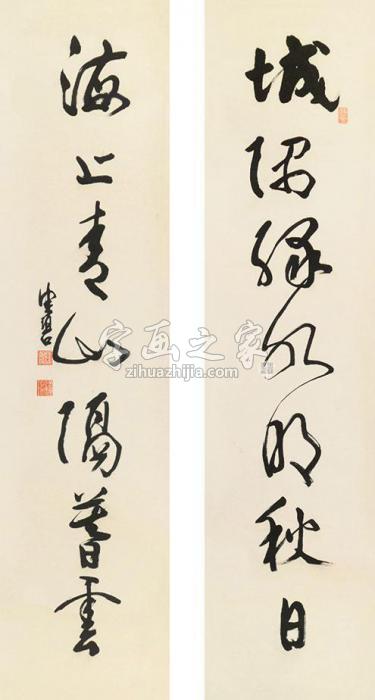 城隅綠水明秋日
海上青山隔暮雲
字画之家
zihuazhijia.com